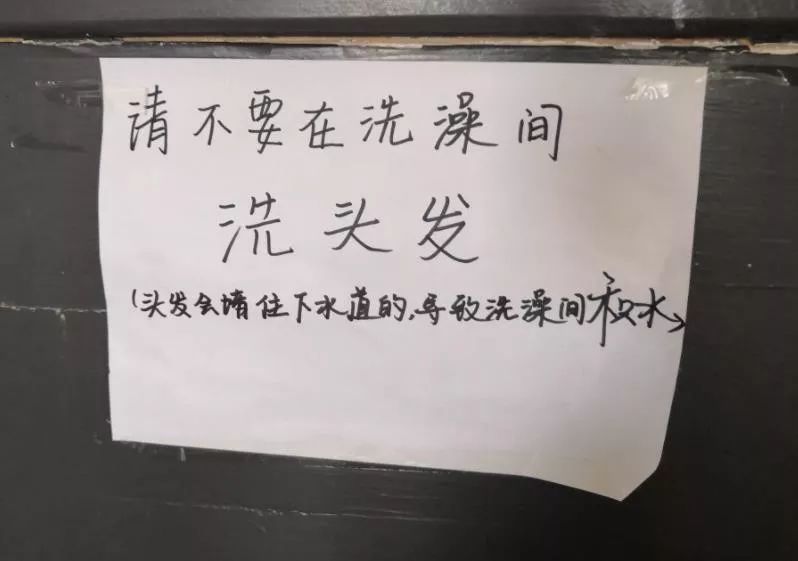 请不要在洗澡间
洗头发
(头发会堵住下水道的,导致洗澡间积水)